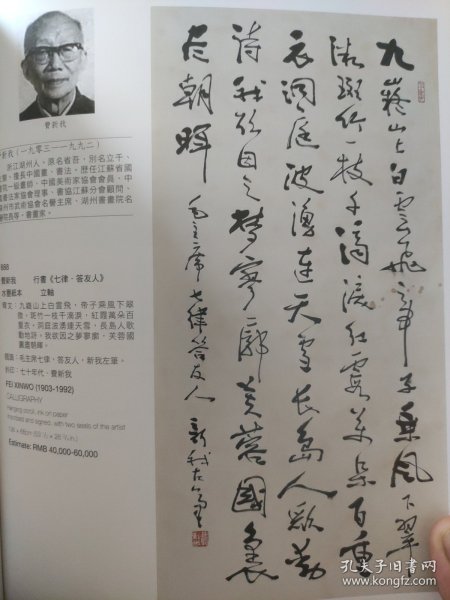 費新我
新我(一九零三—一九九二)
浙江湖州人。原名省吾,別名立千、
立齋。擅長中國畫、書法。歷任江蘇省國
畫院一級畫師、中國美術家協會會員、中
國書法家協會理事、書協江蘇分會顧問、
湖州市武術協會名譽主席、湖州書畫院名
譽院長等。書畫家。
888
費新我 行書《七律·答友人》
水墨紙本 立軸
釋文:九嶷山上白雲飛,帝子乘風下翠
微。斑竹一枝千滴淚,紅霞萬朵百
重衣。洞庭波湧連天雪,長島人歌
動地詩。我欲因之夢寥廓,芙蓉國
裏盡朝暉。
題識:毛主席七律,答友人,新我左筆。
鈐印:七十年代、費新我
FEI XINWO (1903-1992)
CALLIGRAPHY
Hanging scroll, ink on paper
Inscribed and signed, with two seals of the artist
Estimate: RMB 40,000-60,000
九嶷山上白雲飛帝子乘風下翠
微斑竹一枝千滴淚紅霞萬朵百重
衣洞庭波湧連天雪長島人歌動
詩我欲因之夢寥廓芙蓉國裏
尽朝暉 毛主席七律答友人 新我左筆
孔夫子旧书网
www.kongfz.com